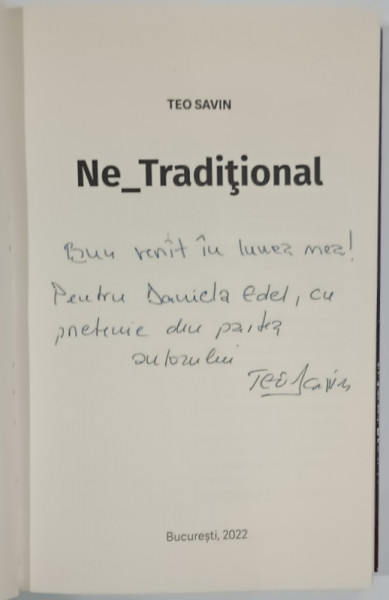 TEO SAVIN
Ne_Tradiţional
Bun venit în lumea mea!
Pentru Daniela Edel, cu
prietenie din partea
autorului
Teo Savin
București, 2022